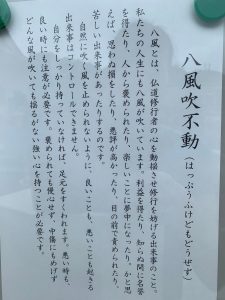 八風吹不動（はっぷうふけどもどうぜず）
八風とは、仏道修行者の心を動揺させ修行を妨げる出来事のこと。
私たちの人生にも八風が吹いています。利益を得たり、知らぬ間に名誉
を得たり、人から褒められたり、楽しいことに夢中になったり。かと思
えば、思わぬ損をしたり、悪評が高かったり、目の前で責められたり、
苦しい出来事があったりするのです。
自然に吹く風を止められないように、良いことも、悪いことも起きる
出来事はコントロールできません。
自分をしっかり持っていなければ、足元をすくわれます。悪い時も、
良い時にも注意が必要です。褒められても慢心せず、中傷にもめげず
どんな風が吹いても揺るがない強い心を持つことが必要です。